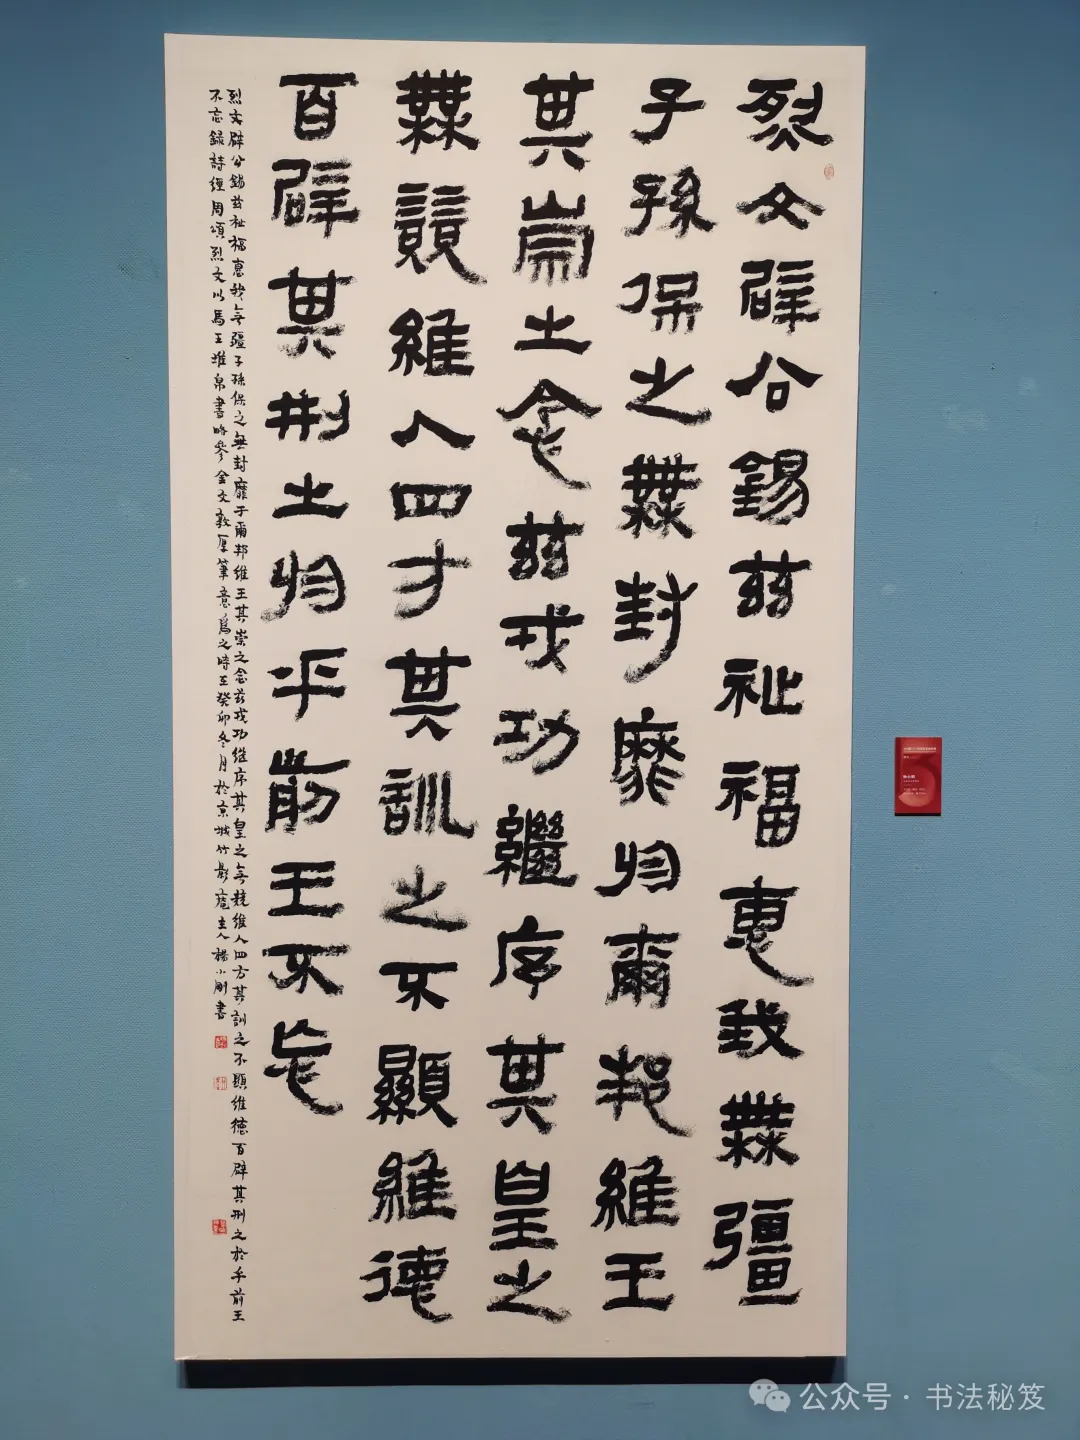 烈文辟公錫茲祉福惠我無疆
子孫保之無封靡於爾邦維王
其崇之念茲戎功繼序其皇之
無競維人四方其訓之不顯維德
百辟其刑之於乎前王不忘
烈文辟公錫茲祉福惠我無疆子孫保之無封靡于爾邦維王其崇之念茲戎功繼序其皇之無競維人四方其訓之不顯維德百辟其刑之於乎前王
不忘錄詩經周頌烈文以馬王堆帛書略參金文敦厚筆意為之時在癸卯冬月於京城竹影庵主人楊小剛書
公众号 · 书法秘笈